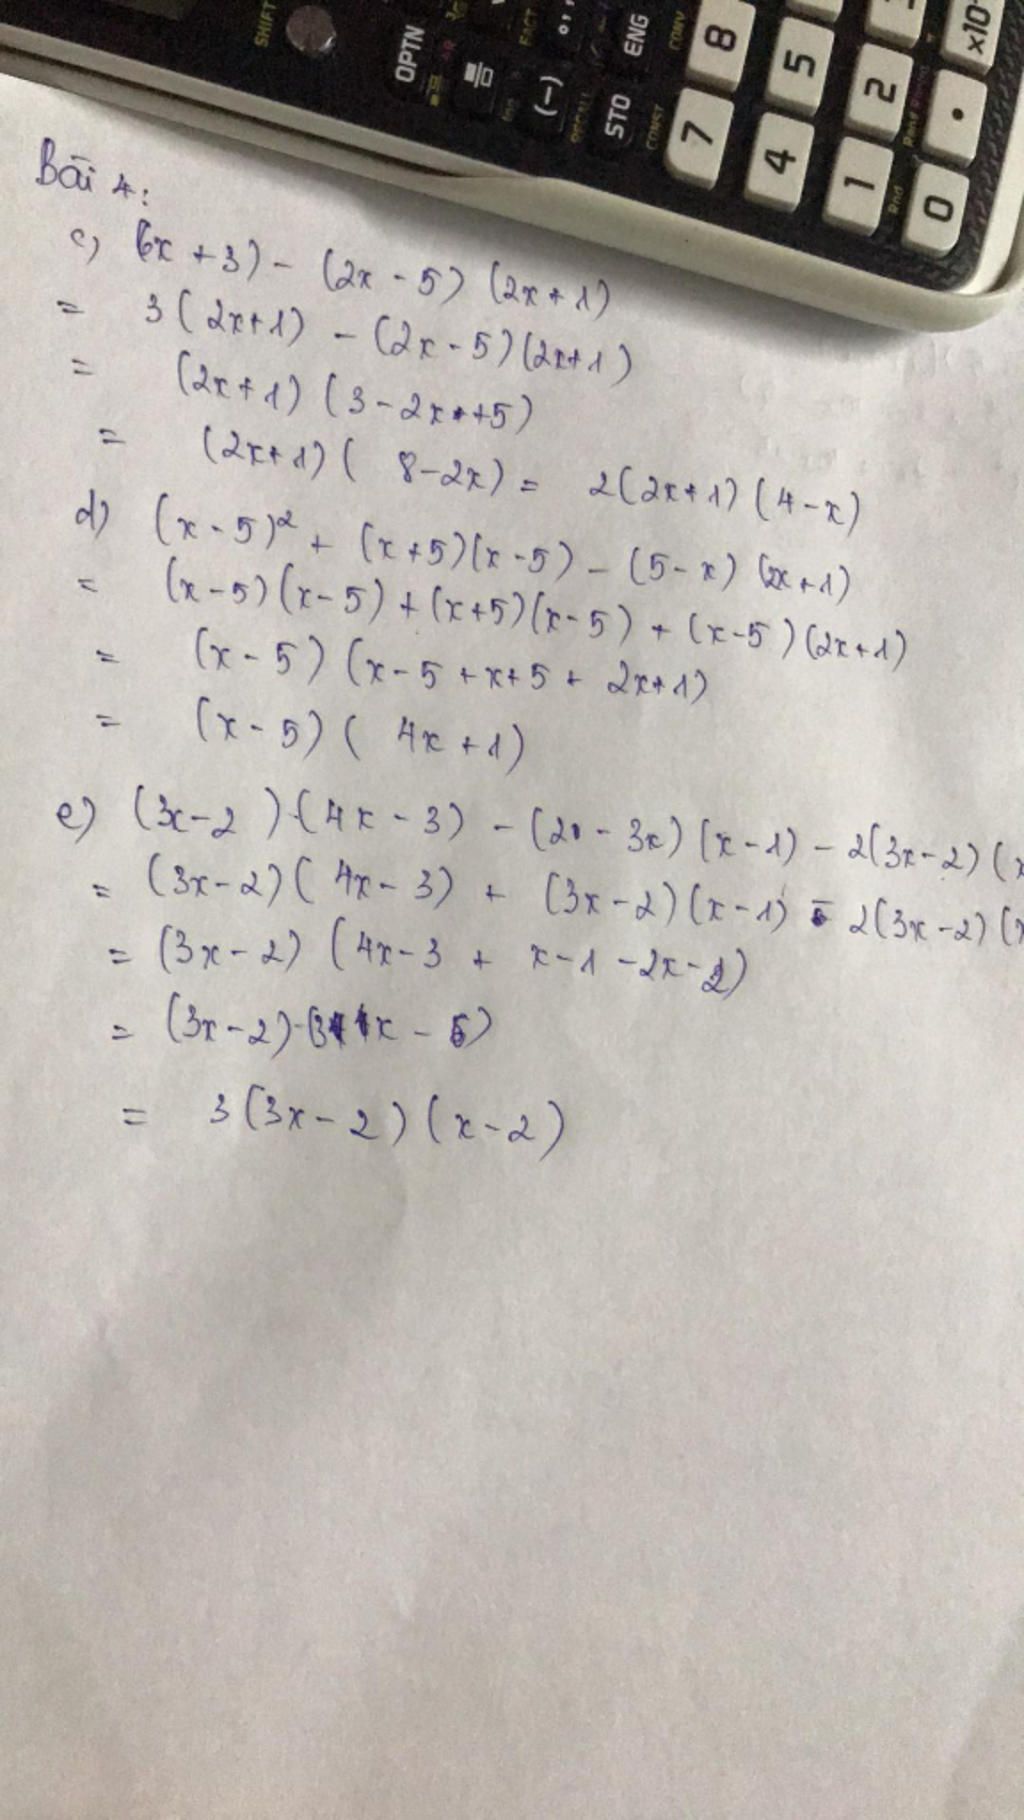 SHIFT
OPTN
FACT
° , ,,
ENG
CONV
8
5
2
×10
(−)
RECALL
STO
CONST
7
4
1
Rnd
•
0
Bài 4:
c) (6x + 3) - (2x - 5) (2x + 1)
= 3 (2x+1) - (2x - 5) (2x+1)
= (2x+1) (3 - 2x + 5)
= (2x+1) ( 8 - 2x) = 2(2x+1) (4 - x)
d) (x - 5)² + (x + 5)(x - 5) - (5 - x) (2x + 1)
= (x - 5) (x - 5) + (x+5) (x - 5) + (x - 5) (2x + 1)
= (x - 5) (x - 5 + x + 5 + 2x + 1)
= (x - 5) ( 4x + 1)
e) (3x - 2) . (4x - 3) - (2 - 3x) (x - 1) - 2(3x - 2) (x
= (3x - 2) ( 4x - 3) + (3x - 2) (x - 1) - 2(3x - 2) (x
= (3x - 2) (4x - 3 + x - 1 - 2x - 2)
= (3x - 2) . (3x - 6)
= 3 (3x - 2) (x - 2)